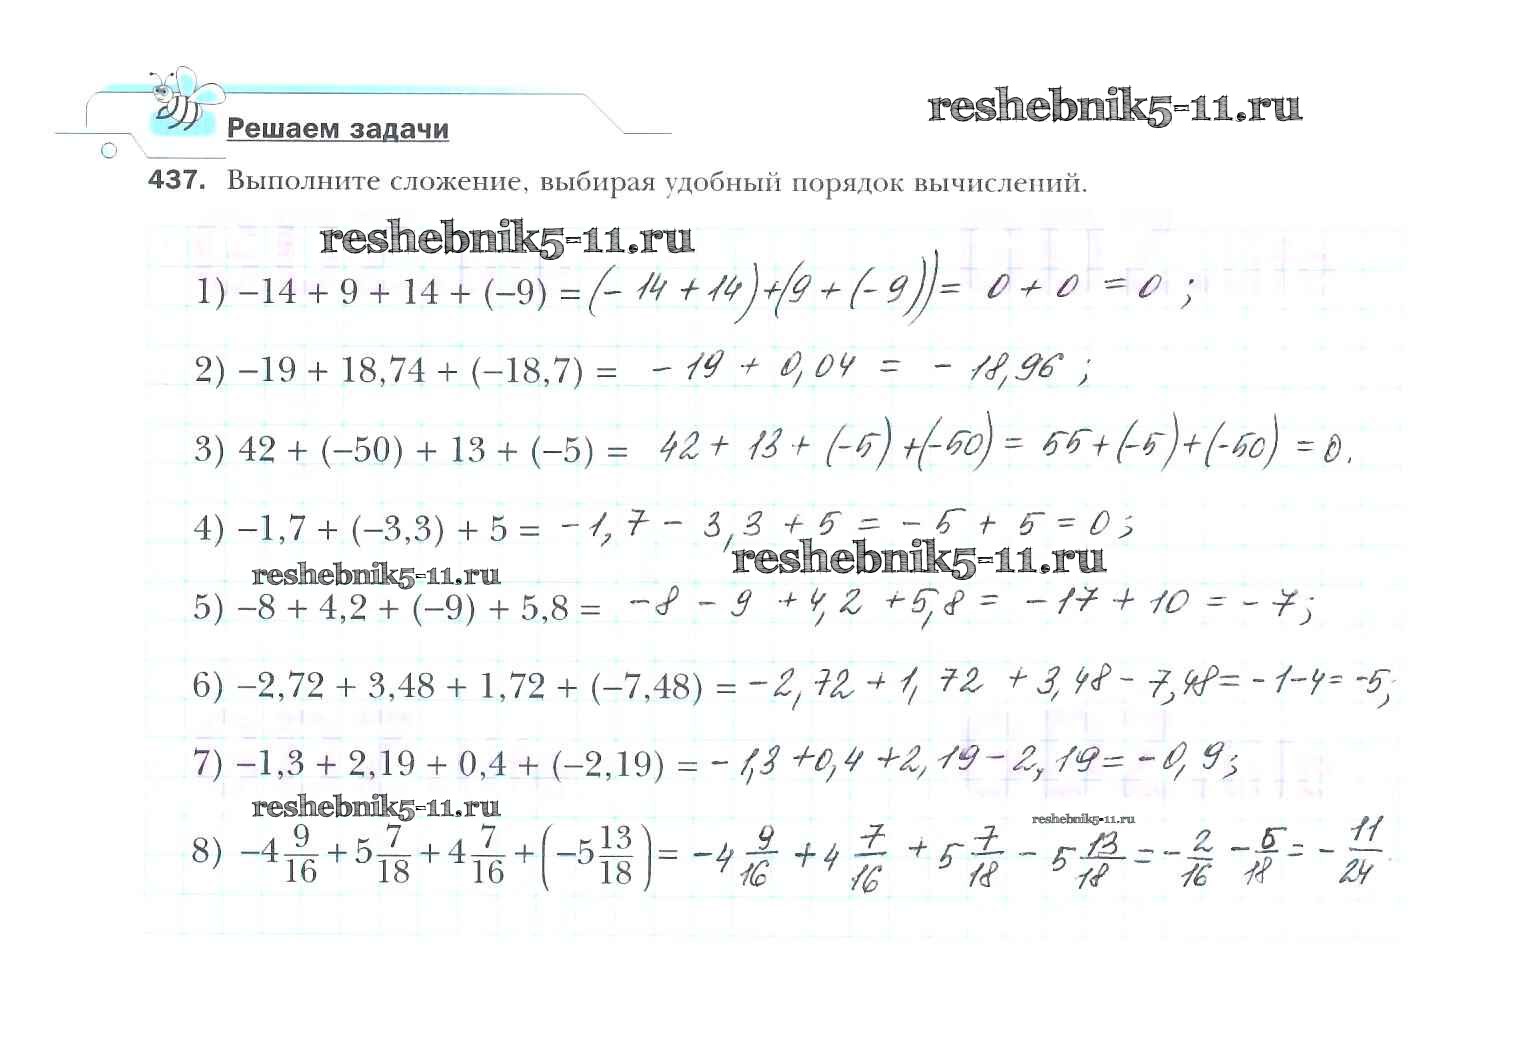 reshebnik5-11.ru
Решаем задачи
437. Выполните сложение, выбирая удобный порядок вычислений.
reshebnik5-11.ru
1) –14 + 9 + 14 + (–9) = (- 14 + 14) + (9 + (- 9)) = 0 + 0 = 0 ;
2) –19 + 18,74 + (–18,7) = - 19 + 0,04 = - 18,96 ;
3) 42 + (–50) + 13 + (–5) = 42 + 13 + (-5) + (-50) = 55 + (-5) + (-50) = 0.
4) –1,7 + (–3,3) + 5 = - 1,7 - 3,3 + 5 = - 5 + 5 = 0 ;
reshebnik5-11.ru
reshebnik5-11.ru
5) –8 + 4,2 + (–9) + 5,8 = - 8 - 9 + 4,2 + 5,8 = - 17 + 10 = - 7 ;
6) –2,72 + 3,48 + 1,72 + (–7,48) = - 2,72 + 1,72 + 3,48 - 7,48 = - 1 - 4 = -5;
7) –1,3 + 2,19 + 0,4 + (–2,19) = - 1,3 + 0,4 + 2,19 - 2,19 = - 0,9 ;
reshebnik5-11.ru
reshebnik5-11.ru
8) –4 9/16 + 5 7/18 + 4 7/16 + (–5 13/18) = - 4 9/16 + 4 7/16 + 5 7/18 - 5 13/18 = - 2/16 - 5/18 = - 11/24